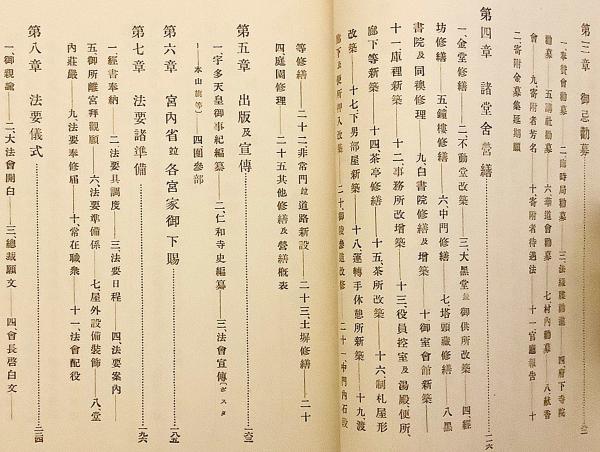 第三章 御忌勸募
一、奉賛會勸募 二、臨時局勸募 四、府下寺院
勸募 五、講社勸募 六、華道會勸募 七、村内勸募 八、献香
會 九、寄附者芳名 十、寄附者待遇法 十一、官廳報告 十
二、寄附金募集延期願
第四章 諸堂舍營繕 一一六
一、金堂修繕 二、不動堂改築 三、大黑堂並御供所改築 四、經
坊修繕 五、鐘樓修繕 六、中門修繕 七、塔頭藏修繕 八、黑
書院及同複修理 九、白書院修繕及增築 十、御室會館新築
十一、庫裡新築 十二、事務所改增築 十三、役員控室及湯殿便所、
廊下等新築 十四、茶亭修繕 十五、茶所改築 十六、制札屋形
改築 十七、下男部屋新築 十八、運轉手休憩所新築 十九、渡
廊下及便所押入改築 二十、御陵參道改修 二十一、中門内石段
等修繕 二十二、非常門並道路新設 二十三、土塀修繕 二十
四、庭園修理 二十五、其他修繕及營繕概表
第五章 出版及宣傳
一、宇多天皇御事紀編纂 二、仁和寺史編纂 三、法會宣傳(ポスタ
ー本山號等) 四、團參部
第六章 宮内省並各宮家御下賜 一八五
第七章 法要諸準備 一九六
一、經書奉納 二、法要具調度 三、法要日程 四、法要案内
五、御所離宮拜觀願 六、法要準備係 七、屋外設備裝飾 八、堂
内莊嚴 九、法要奉修届 十、常在職衆 十一、法會配役
第八章 法要儀式 二三四
一、御親諭 二、大法會開白 三、總裁願文 四、會長啓白文